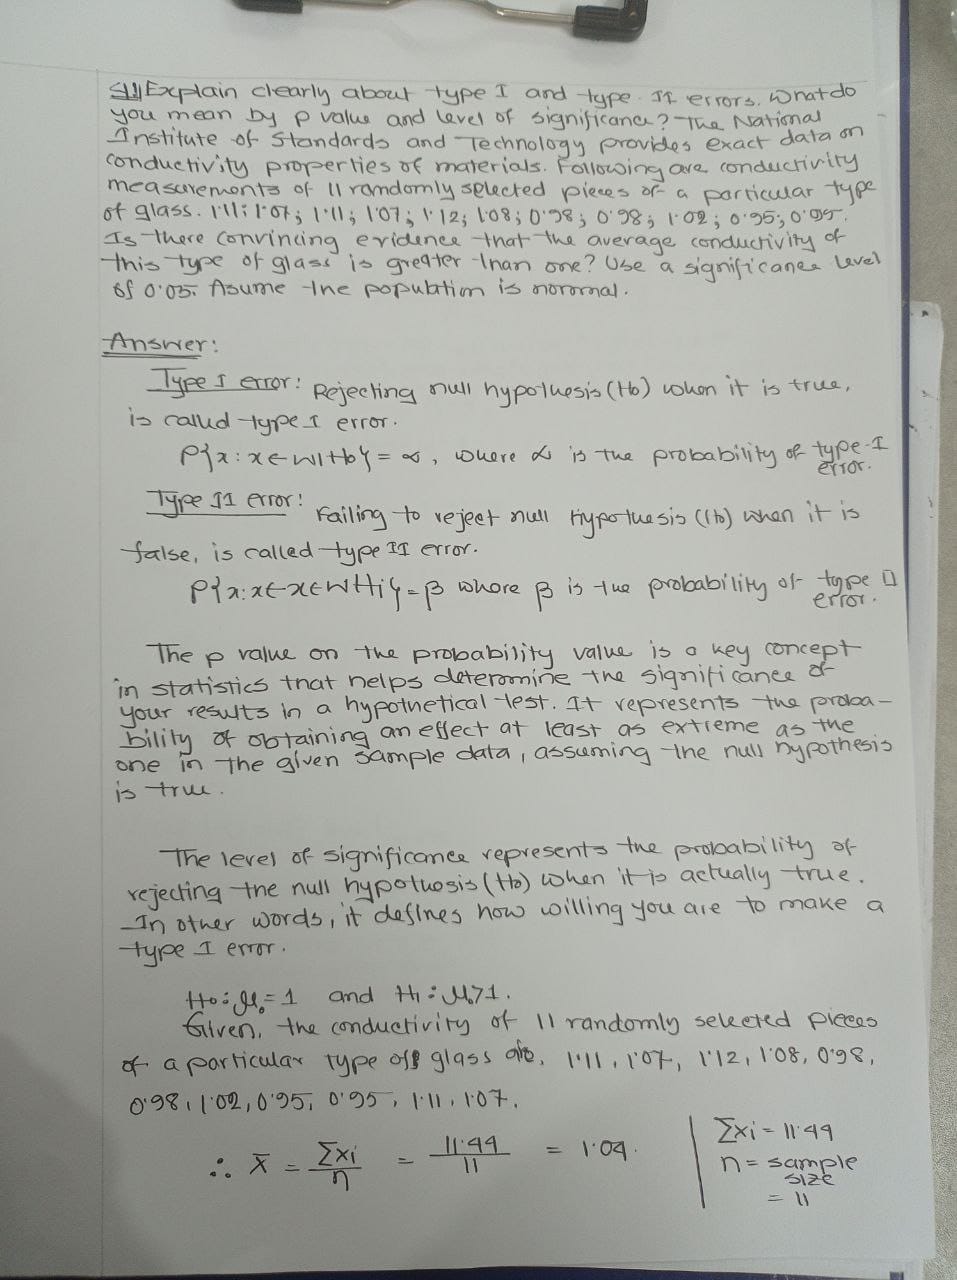 Explain clearly about type I and type II errors. What do
you mean by p value and level of significance? The National
Institute of Standards and Technology provides exact data on
conductivity properties of materials. Following are conductivity
measurements of 11 randomly selected pieces of a particular type
of glass. 1.11; 1.07; 1.11; 1.07; 1.12; 1.08; 0.98; 0.98; 1.02; 0.95; 0.95.
Is there convincing evidence that the average conductivity of
this type of glass is greater than one? Use a significance level
of 0.05. Asume the population is normal.
Answer:
Type I error: Rejecting null hypothesis (H0) when it is true,
is called type I error.
P{x: x ∈ W|H0} = α, where α is the probability of type-I
error.
Type II error: Failing to reject null Hypothesis (H0) when it is
false, is called type II error.
P{x: x ∈ x ∈ W H1} = β where β is the probability of type II
error.
The p value on the probability value is a key concept
in statistics that helps determine the significance of
your results in a hypothetical test. It represents the proba-
bility of obtaining an effect at least as extreme as the
one in the given sample data, assuming the null hypothesis
is true.
The level of significance represents the probability of
rejecting the null hypothesis (H0) when it is actually true.
In other words, it defines how willing you are to make a
type I error.
H0: μ0 = 1 and H1: μ0>1.
Given, the conductivity of 11 randomly selected pieces
of a particular type of glass are, 1.11, 1.07, 1.12, 1.08, 0.98,
0.98, 1.02, 0.95, 0.95, 1.11, 1.07.
∴ x̄ = Σxi/n = 11.44/11 = 1.04.
Σxi = 11.44
n = sample
size
= 11